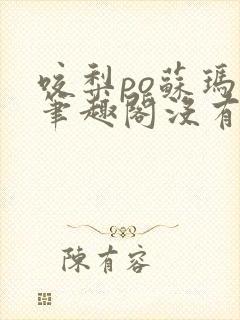 咬梨po蘇瑪
筆趣閣沒有
陳有容